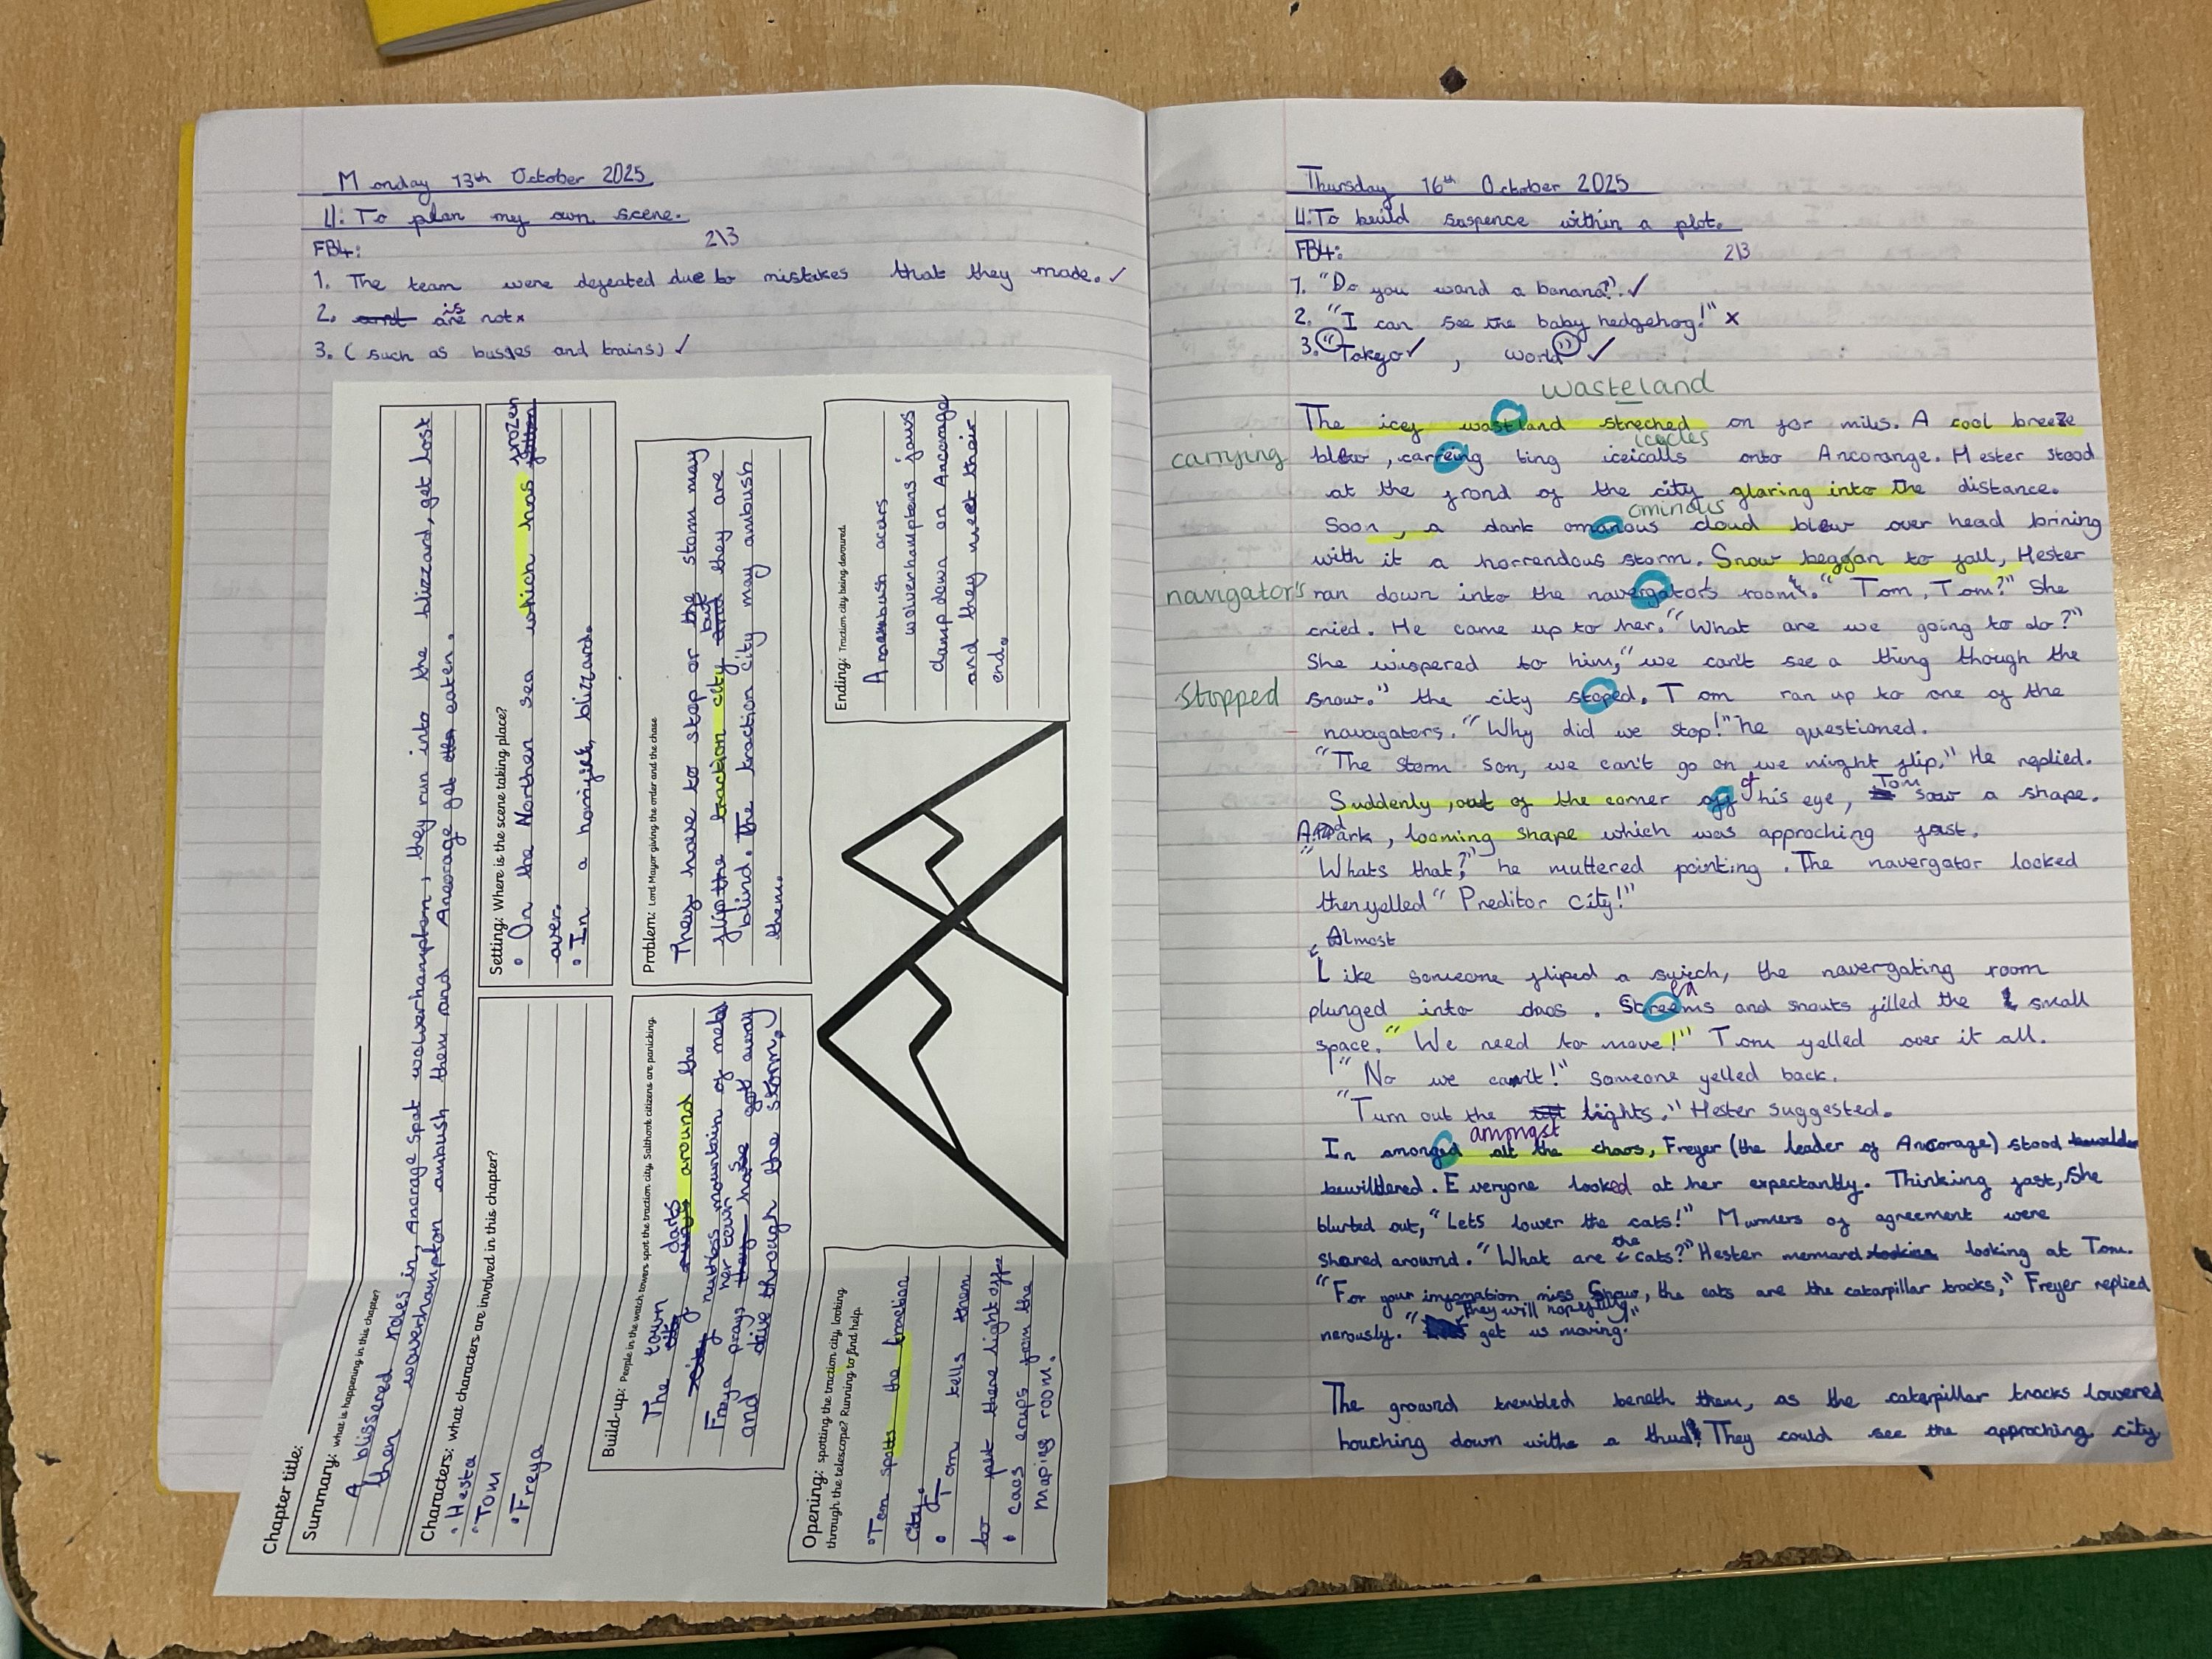 Monday 13th October 2025
LI: To plan my own scene.
FB4: 2\3
1. The team were defeated due to mistakes that they made. ✓
2. are is not x
3. (such as busses and trains) ✓
Chapter title:
Summary: what is happening in this chapter?
A blissered roles in, Ancorage spot wolverhampton, they run into the blizzard, get lost
then wolverhampton ambush them and Ancorage get eaten.
Characters: what characters are involved in this chapter?
• Hesta
• Tom
• Freya
Setting: Where is the scene taking place?
• On the Northen sea which has frozen
over.
• In a horrific blizzard.
Build-up: People in the watch towers spot the traction city. Salthook citizens are panicking.
The town darts around the
nutoss mountain of metal
Freya prays her town got away
and drive through the storm.
Problem: Lord Mayor giving the order and the chase
They have to stop or the storm may
flip the traction city but they are
blind. The traction city may ambush
them.
Opening: spotting the traction city, looking
through the telescope? Running to find help.
• Tom spotts the traction
city.
• Tom tells them
to put there light off
• caos erups from the
maping room.
Ending: Traction city being devoured.
Anambush acurs
wolverhamptons jaws
clamp down on Ancorage
and they meet their
end.
Thursday 16th October 2025
LI: To build suspence within a plot.
FB4: 2\3
1. "Do you wand a banana?". ✓
2. "I can see the baby hedgehog!" x
3. "Tokyo ✓ , world" ✓
wasteland
The icey wastland streched on for miles. A cool breeze
icicles
carrying
blew, carreing ting iceicalls onto Ancorange. Hester stood
at the frond of the city glaring into the distance.
ominous
Soon, a dark omanous cloud blew over head brining
with it a horrendous storm. Snow beggan to fall, Hester
navigator's
ran down into the navergators room. "Tom, Tom?" She
cried. He came up to her. "What are we going to do?"
She wispered to him, "we can't see a thing though the
stopped
snow." the city stoped. Tom ran up to one of the
navagaters. "Why did we stop!" he questioned.
"The storm son, we can't go on we might flip," He replied.
Suddenly, out of the corner off of his eye, Tom saw a shape.
A dark, looming shape which was approching fast.
"Whats that?" he muttered pointing. The navergator looked
then yelled "Preditor city!"
Almost
Like someone fliped a swich, the navergating room
plunged into caos. Screems ea and shouts filled the small
space. "We need to move!" Tom yelled over it all.
"No we can't!" someone yelled back.
"Turn out the lights," Hester suggested.
amongst
In amongd all the chaos, Freyer (the leader of Ancorage) stood
bewilldered. Everyone looked at her expectantly. Thinking fast, she
blurted out, "Lets lower the cats!" Murmers of agreement were
shared around. "What are the cats?" Hester mermard looking at Tom.
"For your infomation miss Shaw, the cats are the catarpillar tracks," Freyer replied
nerously. "They will hopefully get us moving."
The ground trembled beneth them, as the caterpillar tracks lowered
touching down withe a thud. They could see the approching city